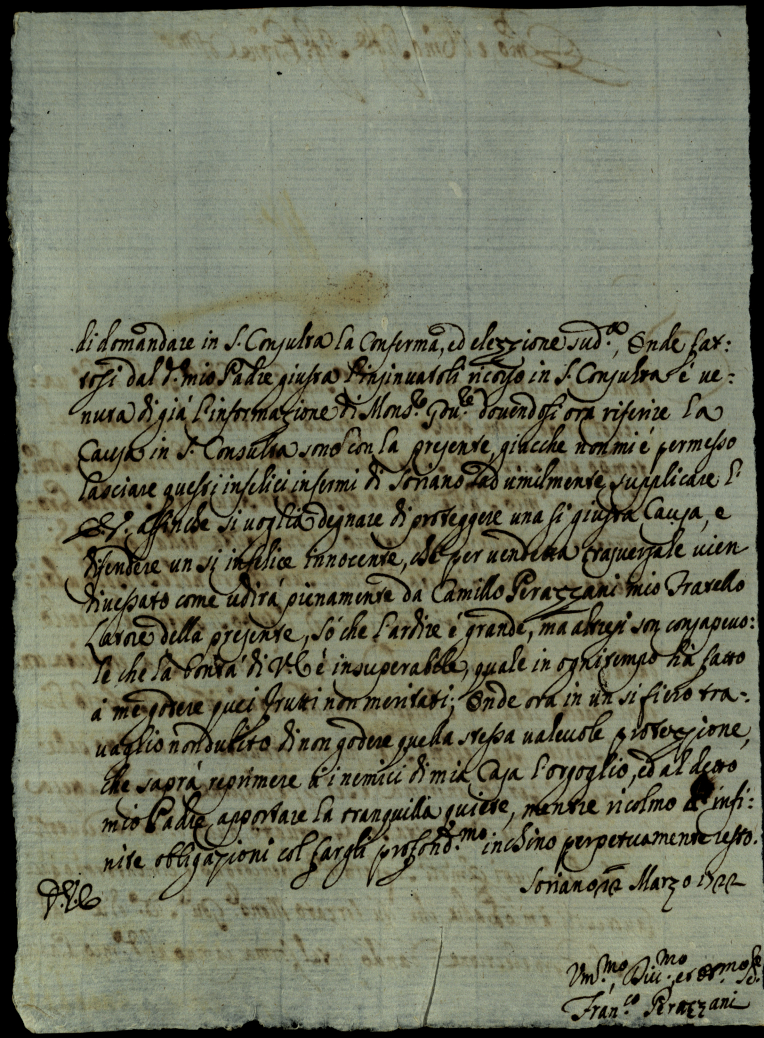 di domandare in S. Consulta la Conferma, ed elezzione sud.ª, Onde fat:
tosi dal d.º mio Padre giusta l'insinuatoli ricorso in S. Consulta è ve:
nuta di già l'informazione di Mons.re Gov.re dovendosi ora riferire la
Causa in S. Consulta sono con la presente, giacche non mi é permesso
lasciare questi infelici infermi di Soriano ad umilmente supplicare l'
affinche si voglia degnare di proteggere una si giusta Causa, e
difendere un si infelice innocente, che per vendetta trasversale vien
divessato come udirá pienamente da Camillo Perazzani mio Fratello
Latore della presente, Só che l'ardire é grande, ma altresi son consapevo:
le che la bontá di V.E. è insuperabile, quale in ogni tempo há fatto
á me godere quei frutti non meritati; Onde ora in un si fiero tra:
vaglio non dubito di non godere quella stessa valevole protezzione,
che saprá reprimere á i nemici di mia Casa l'orgoglio, ed al detto
mio Padre apportare la tranquilla quiete, mentre ricolmo d' infi:
nite obligazioni col fargli profond.mo inchino perpetuamente resto.
Soriano 12 Marzo 1722
D.V.E.
Um.mo, Div.mo, et
Fran.co Perazzani